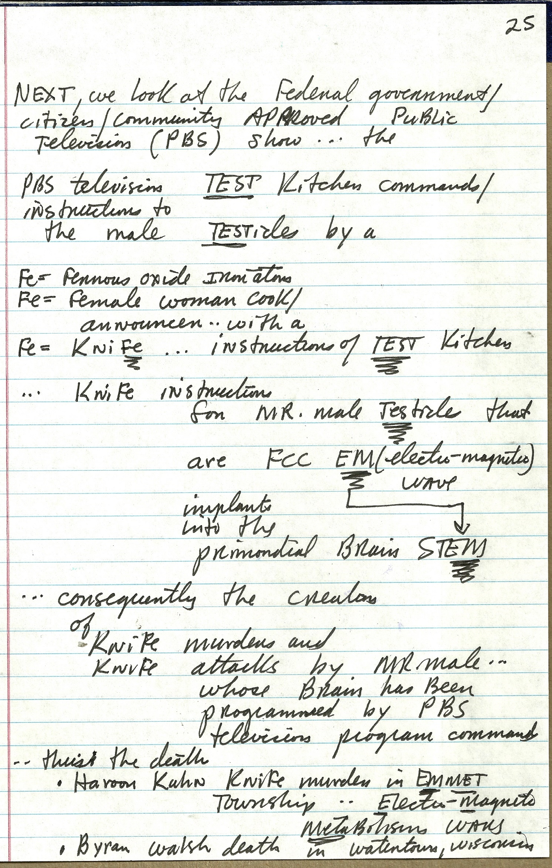 25
NEXT, we look at the Federal government/
citizen/community APPROVED Public
Television (PBS) show ... the
PBS television TEST Kitchen commands/
instructions to
the male TESTicles by a
Fe= Ferrous oxide Iron atoms
Fe= Female woman cook/
announcer .. with a
Fe= KniFe ... instructions of TEST Kitchen
... KniFe instructions
for MR. male Testicle that
are FCC EM (electro-magneto)
wave
implants
into the
primordial Brain STEM
... consequently the creation
of
KniFe murders and
KniFe attacks by MR male ...
whose Brain has Been
programmed by PBS
television program command
... the death
• Haroon Kahn KniFe murder in EMMET
Township .. Electro-Magneto
MetaBolism wave
• Byran walsh death in watertown, wisconsin